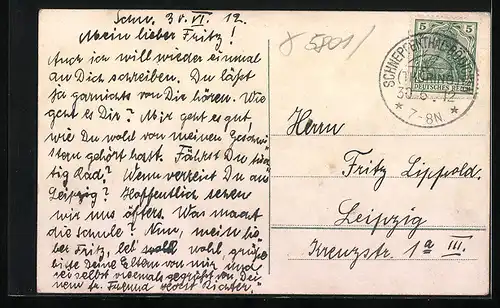 Schn. 30. VI. 12.
Mein lieber Fritz!
Auch ich will wieder einmal
an Dich schreiben. Du läßt
ja garnichts von Dir hören. Wie
geht es Dir? Mir geht es gut,
wie Du wohl von meinen Geschwi-
stern gehört hast. Fährst Du tüch-
tig Rad? Wenn verreist Du aus
Leipzig? Hoffentlich sehen
wir uns öfters. Was macht
die Schule? Nun, mein lie-
ber Fritz, leb wohl, grüße
bitte Deine Eltern von mir und
sei selbst vielmals gegrüßt von Dei-
nem tr. Freund Horst Richter.
5801/
5 5
DEUTSCHES REICH
SCHNEPFENTHAL-RÖDICHEN
(THÜRINGEN)
30. 6. 12
* 7-8N. *
Herrn
Fritz Lippold.
Leipzig
Kreuzstr. 1a III.